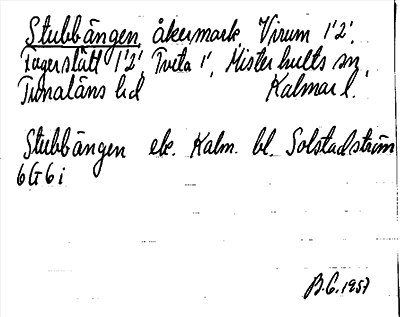 Stubbängen åkermark Virum 1'2'.
Fagerslätt 1'2', Tveta 1', Misterhults sn,
Tunaläns hd Kalmar l.
Stubbängen ek. Kalm. bl. Solstadström
6G6i
B.G. 1957